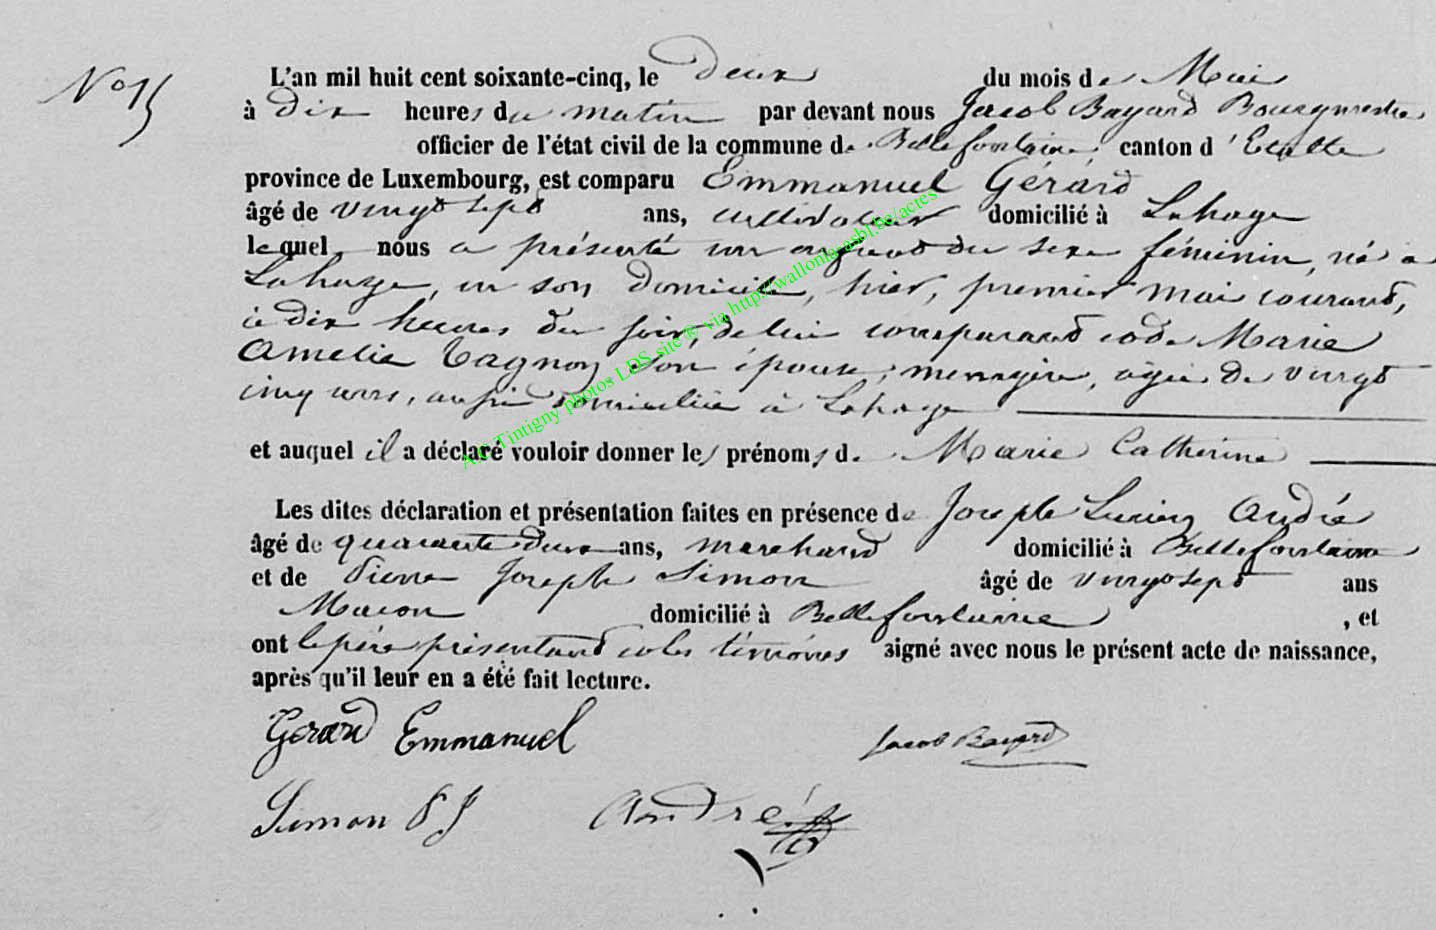 No 15
L'an mil huit cent soixante-cinq, le Deux du mois de Mai
à Dix heures du matin par devant nous Jacob Bayard Bourgmestre
officier de l'état civil de la commune de Bellefontaine canton d'Etalle
province de Luxembourg, est comparu Emmanuel Gérard
âgé de vingt sept ans, cultivateur domicilié à Lahage
lequel nous a présenté un enfant du sexe féminin, né à
Lahage, en son domicile, hier, premier mai courant,
à dix heures du soir, de lui comparant et de Marie
Amelie Tagnon son épouse, menagère, agée de vingt
cinq ans, aussi domiciliée à Lahage
et auquel il a déclaré vouloir donner les prénoms de Marie Catherine
Les dites déclaration et présentation faites en présence de Joseph Lucien André
âgé de quarante deux ans, marchand domicilié à Bellefontaine
et de Pierre Joseph Simon âgé de vingt sept ans
Macon domicilié à Bellefontaine , et
ont le père présentant et les témoins signé avec nous le présent acte de naissance,
après qu'il leur en a été fait lecture.
Gerard Emmanuel Jacob Bayard
Simon PJ André
A.C. Tintigny photos LDS site © via http://wallonia-asbl.be/actes